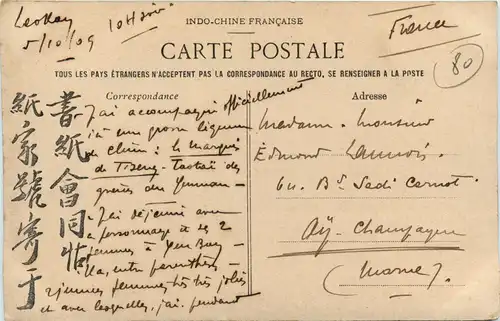 Laokay
5/10/09
10H soir
INDO-CHINE FRANÇAISE
France
80
CARTE POSTALE
TOUS LES PAYS ÉTRANGERS N'ACCEPTENT PAS LA CORRESPONDANCE AU RECTO. SE RENSEIGNER A LA POSTE
Correspondance
J'ai accompagné officiellement
ici une grosse légume
de Chine: le marquis
de Tseng-Taotaï des
du Yunnan-
J'ai déjeuné avec
personnage et 2
femmes à
entre parenthèses-
2 jeunes femmes très très jolies
et avec lesquelles, j'ai pendant
書紙會同
紙家號寄于
Adresse
Madame. Monsieur
Edmond Launois.
64. Bd Sadi Carnot.
Aÿ-Champagne
(Marne).